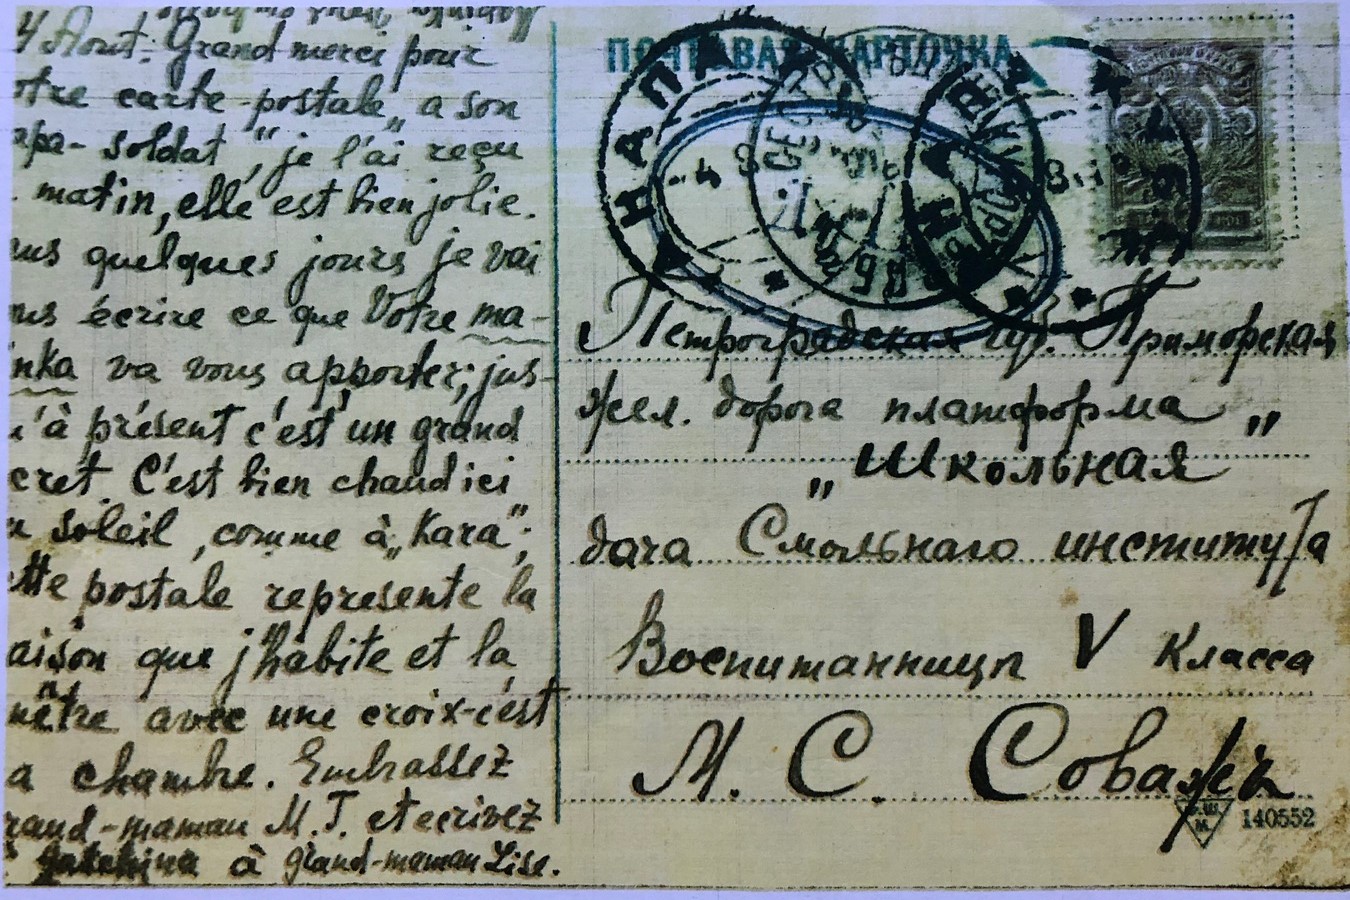 4 Aout. Grand merci pour
otre carte-postale „a son
apa-soldat", je l'ai reçu
matin, elle est bien jolie.
ns quelques jours je vai
us écrire ce que Votre ma-
inka va vous apporter; jus-
'à présent c'est un grand
cret. C'est bien chaud ici
u soleil, comme à „Kara";
ette postale represente la
aison que j'habite et la
nêtre avec une croix-c'est
a chambre. Embrassez
rand-maman M. T. et ecrivez
à grand-maman Lise.
ПОЧТОВАЯ КАРТОЧКА
АНАПА
АНАПА
Петроградская губ. Приморская
жел. дорога платформа „
„Школьная
дача Смольнаго института
Воспитанницѣ V класса
М. С. Соважъ
140552